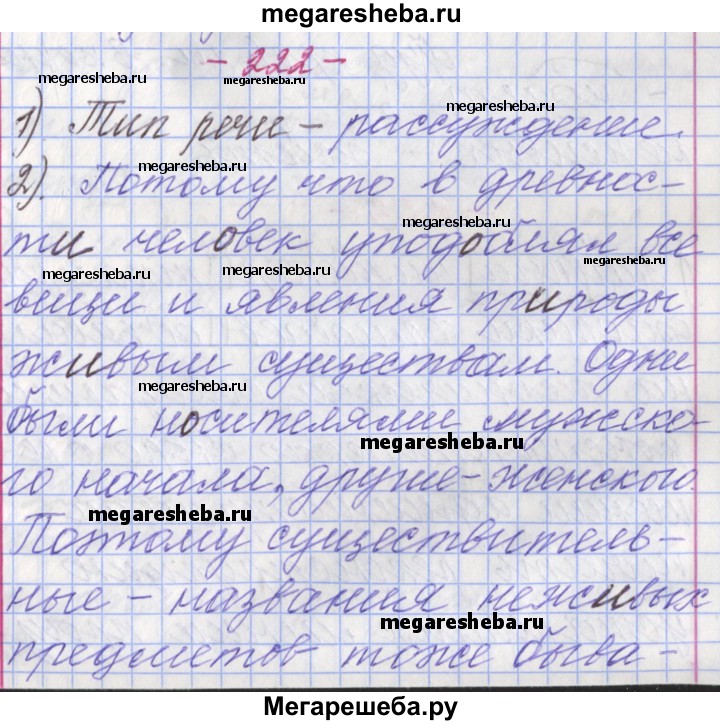 megaresheba.ru
- 222 -
megaresheba.ru megaresheba.ru
1) Тип речи - рассуждение.
megaresheba.ru
2). Потому что в древнос-
megaresheba.ru
ти человек уподоблял все
megaresheba.ru megaresheba.ru
вещи и явления природы
живым существам. Одни
megaresheba.ru
были носителями мужско-
megaresheba.ru
го начала, другие - женского.
megaresheba.ru
Поэтому существитель-
ные - названия неживых
megaresheba.ru
предметов тоже быва-
Мегарешеба.ру